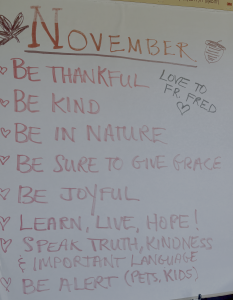 NOVEMBER
BE THANKFUL
LOVE TO
FR. FRED
BE KIND
BE IN NATURE
BE SURE TO GIVE GRACE
BE JOYFUL
LEARN, LIVE, HOPE!
SPEAK TRUTH, KINDNESS
& IMPORTANT LANGUAGE
BE ALERT (PETS, KIDS)